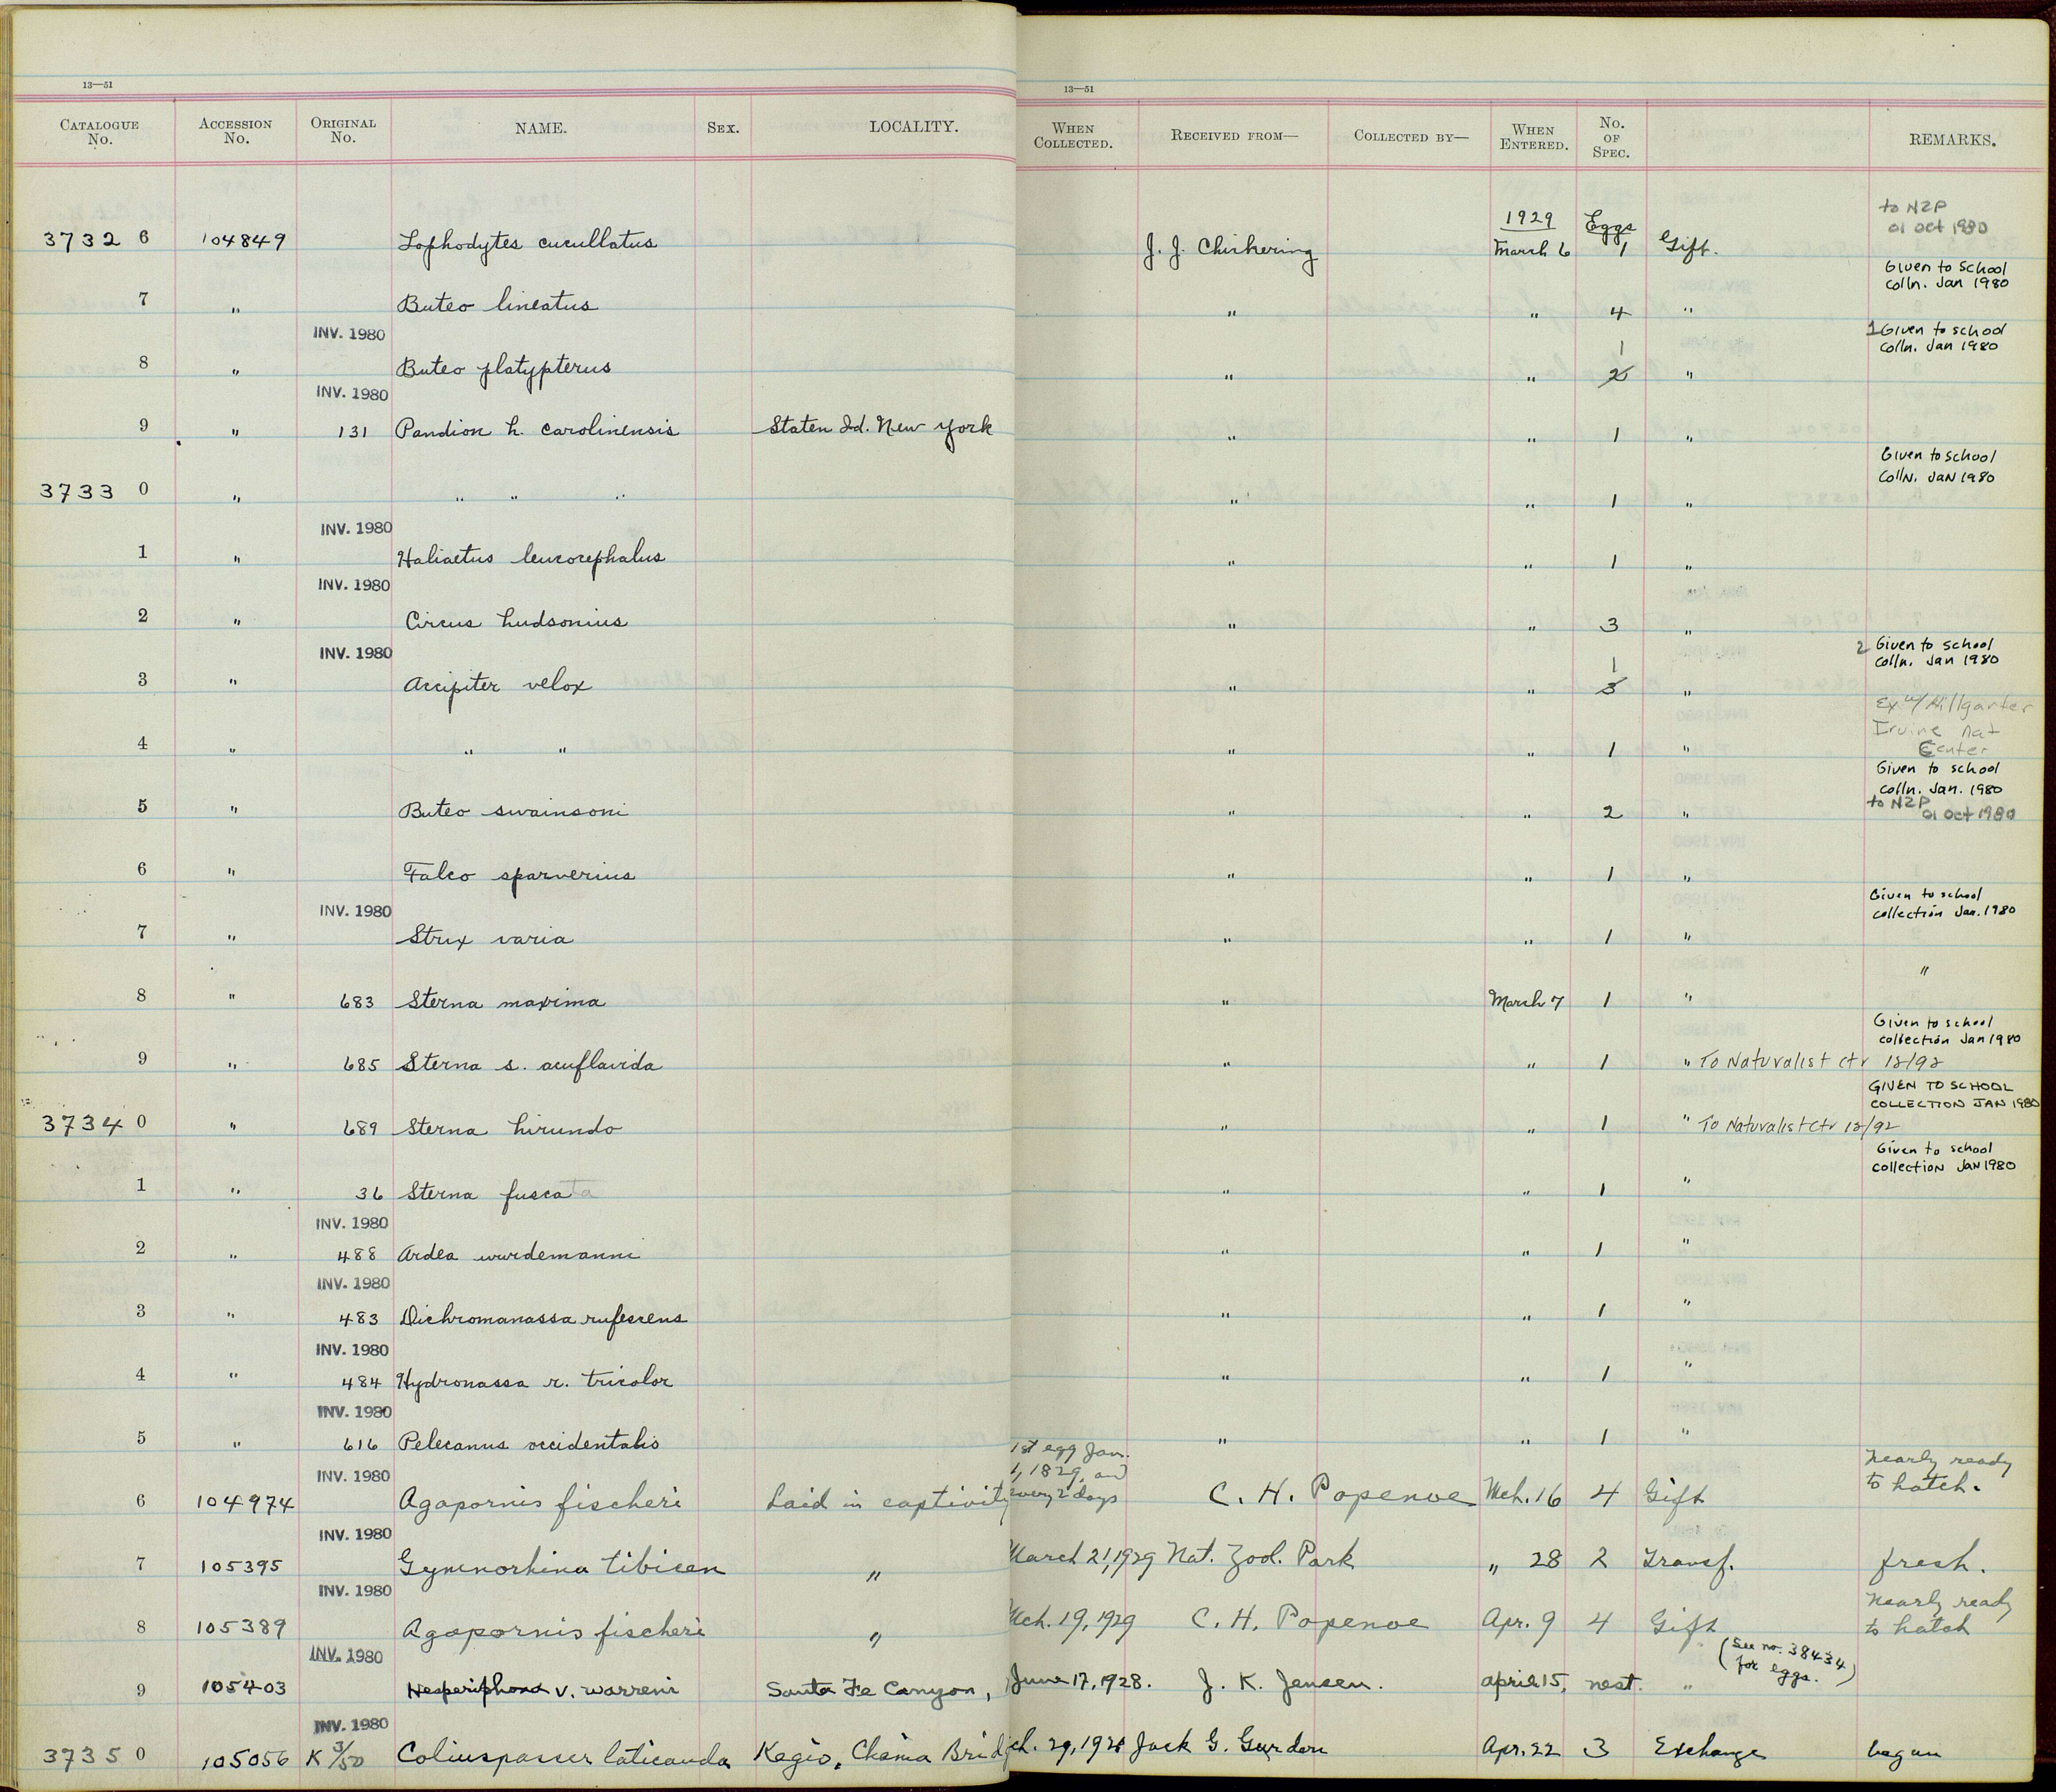 13—51 13—51
CATALOGUE No. ACCESSION No. ORIGINAL No. NAME. SEX. LOCALITY. WHEN COLLECTED. RECEIVED FROM— COLLECTED BY— WHEN ENTERED. No. OF SPEC. REMARKS.
to NZP
01 Oct 1980
1929 Eggs
3732 6 104849 Lophodytes cucullatus J. J. Chickering March 6 1 Gift.
Given to School
colln. Jan 1980
7 " Buteo lineatus " " 4 "
INV. 1980 1 Given to school
colln. Jan 1980
1
8 " Buteo platypterus " " 2 "
INV. 1980
9 " 131 Pandion h. carolinensis Staten Id. New York " " 1 "
Given to school
Colln. Jan 1980
3733 0 " " " " " " 1 "
INV. 1980
1 " Haliaetus leucocephalus " " 1 "
INV. 1980
2 " Circus hudsonius " " 3 "
INV. 1980 2 Given to school
colln. Jan 1980
1
3 " Accipiter velox " " 3 "
Ex. w/ Hillgarter
Irvine Nat
Center
4 " " " " " 1 "
Given to school
colln. Jan. 1980
to NZP
01 Oct 1980
5 " Buteo swainsoni " " 2 "
6 " Falco sparverius " " 1 "
INV. 1980 Given to school
collection Jan. 1980
7 " Strix varia " " 1 "
"
8 " 683 Sterna maxima " March 7 1 "
Given to school
collection Jan 1980
9 " 685 Sterna s. acuflavida " " 1 " To Naturalist Ctr 12/92
GIVEN TO SCHOOL
COLLECTION JAN 1980
3734 0 " 689 Sterna hirundo " " 1 " To Naturalist Ctr 12/92
Given to school
collection Jan 1980
1 " 36 Sterna fuscata " " 1 "
INV. 1980
2 " 488 Ardea wurdemanni " " 1 "
INV. 1980
3 " 483 Dichromanassa rufescens " " 1 "
INV. 1980
4 " 484 Hydronassa r. tricolor " " 1 "
INV. 1980
5 " 616 Pelecanus occidentalis " " 1 "
INV. 1980 1st egg Jan. Nearly ready
1, 1829, and to hatch.
6 104974 Agapornis fischeri Laid in captivity every 2 days C. H. Popenoe Mch. 16 4 Gift
INV. 1980
7 105395 Gymnorhina tibicen " March 21, 1929 Nat. Zool. Park " 28 2 Transf. fresh.
INV. 1980 Nearly ready
8 105389 Agapornis fischeri " Mch. 19, 1929 C. H. Popenoe Apr. 9 4 Gift to hatch
INV. 1980 (See no. 38434
for eggs.)
9 105403 Hesperiphona v. warreni Santa Fe Canyon, June 17, 1928. J. K. Jensen. April 15, nest. "
INV. 1980
3735 0 105056 K 3/50 Coliuspasser laticauda Kagio, Chania Bridg ch. 29, 192 Jack G. Gurdon Apr. 22 3 Exchange began